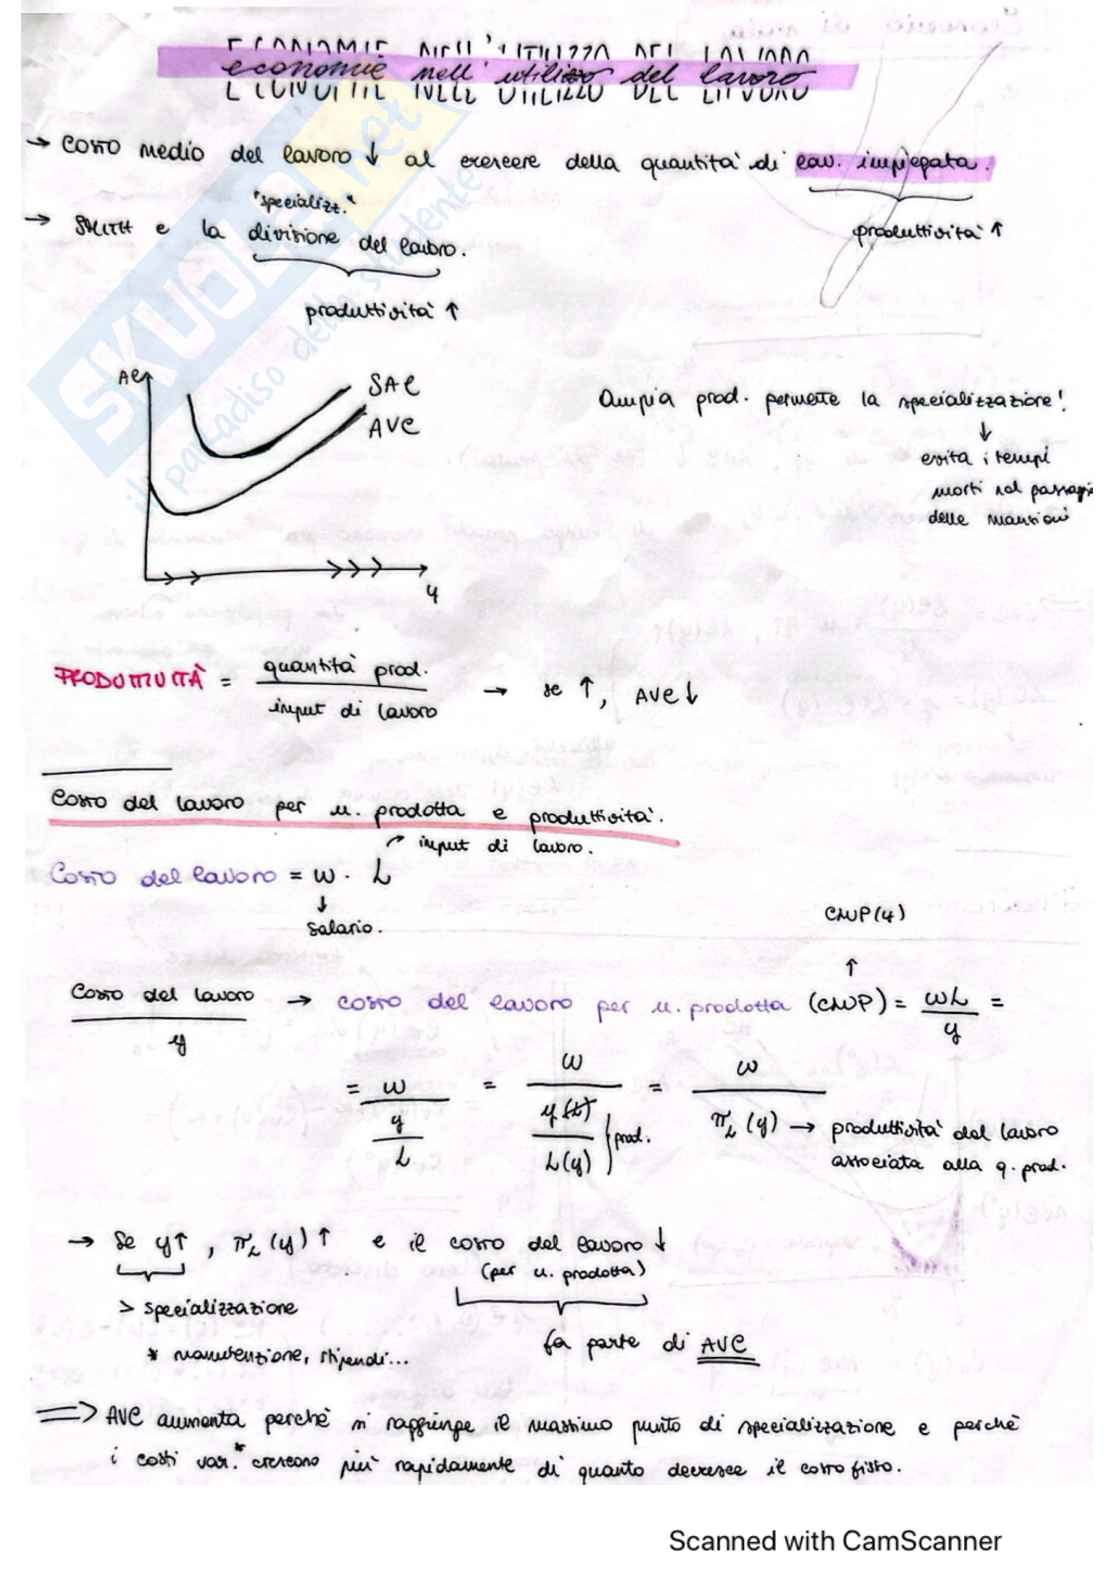 ECONOMIE NELL'UTILIZZO DEL LAVORO
economie nell'utilizzo del lavoro
→ Costo medio del lavoro ↓ al crescere della quantità di lav. impiegata.
"specializz."
produttività ↑
→ SMITH e la divisione del lavoro.
produttività ↑
AC
SAC
AVC
y
Ampia prod. permette la specializzazione!
↓
evita i tempi
morti nel passaggi
delle mansioni
PRODUTTIVITÀ = quantità prod. / input di lavoro → se ↑, AVC ↓
Costo del lavoro per u. prodotta e produttività.
input di lavoro.
Costo del lavoro = w · L
↓
salario.
CLUP(y)
↑
Costo del lavoro / y → costo del lavoro per u. prodotta (CLUP) = wL / y =
= w / (y / L) = w / (y(L) / L(y)) } prod. = w / π_L(y) → produttività del lavoro
associata alla q. prod.
→ Se y↑, π_L(y) ↑ e il costo del lavoro ↓
(per u. prodotta)
> specializzazione
* manutenzione, stipendi...
fa parte di AVC
⇒ AVC aumenta perchè si raggiunge il massimo punto di specializzazione e perchè
i costi var.* crescono più rapidamente di quanto decresce il costo fisso.
SKUOLA.net
il paradiso dello studente
Scanned with CamScanner